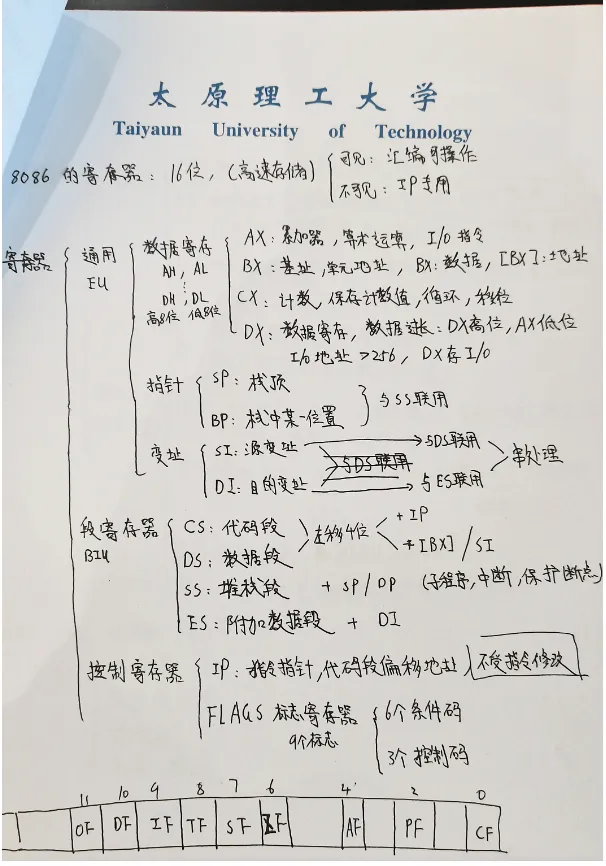 太原理工大学
Taiyaun University of Technology
8086 的寄存器: 16位, (高速存储)
可见: 汇编可操作
不可见: IP专用
寄存器
通用
EU
数据寄存
AH, AL
⋮
DH, DL
高8位 低8位
AX: 累加器, 算术运算, I/O 指令
BX: 基址, 单元地址, BX: 数据, [BX]: 地址
CX: 计数, 保存计数值, 循环, 移位
DX: 数据寄存, 数据过长: DX高位, AX低位
I/O 地址 >256, DX存I/O
指针
SP: 栈顶
BP: 栈中某一位置
与SS联用
变址
SI: 源变址
DI: 目的变址
与DS联用
与DS联用
与ES联用
串处理
段寄存器
BIU
CS: 代码段
DS: 数据段
左移4位
+ IP
+ [BX] / SI
SS: 堆栈段 + SP/DP (子程序, 中断, 保护断点)
ES: 附加数据段 + DI
控制寄存器
IP: 指令指针, 代码段偏移地址
不受指令修改
FLAGS 标志寄存器
9个标志
6个条件码
3个控制码
11 10 9 8 7 6 4 2 0
OF DF IF TF SF ZF AF PF CF